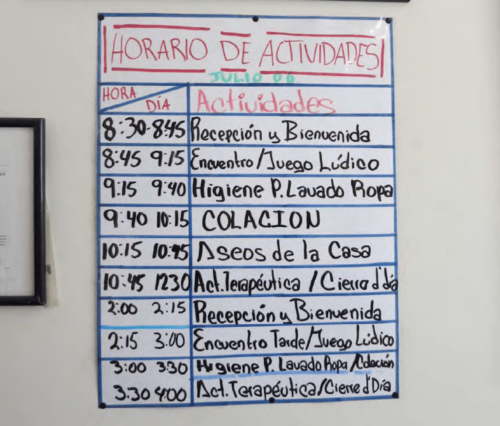 HORARIO DE ACTIVIDADES
JULIO 06
HORA DÍA Actividades
8:30-8:45 Recepción y Bienvenida
8:45 9:15 Encuentro/Juego Lúdico
9:15 9:40 Higiene P. Lavado Ropa
9:40 10:15 COLACION
10:15 10:45 Aseos de la Casa
10:45 1230 Act. Terapéutica / Cierre d'día
2:00 2:15 Recepción y Bienvenida
2:15 3:00 Encuentro Tarde/Juego Lúdico
3:00 330 Higiene P. Lavado Ropa /Colación
3.30 4:00 Act. Terapéutica/Cierre d'Día